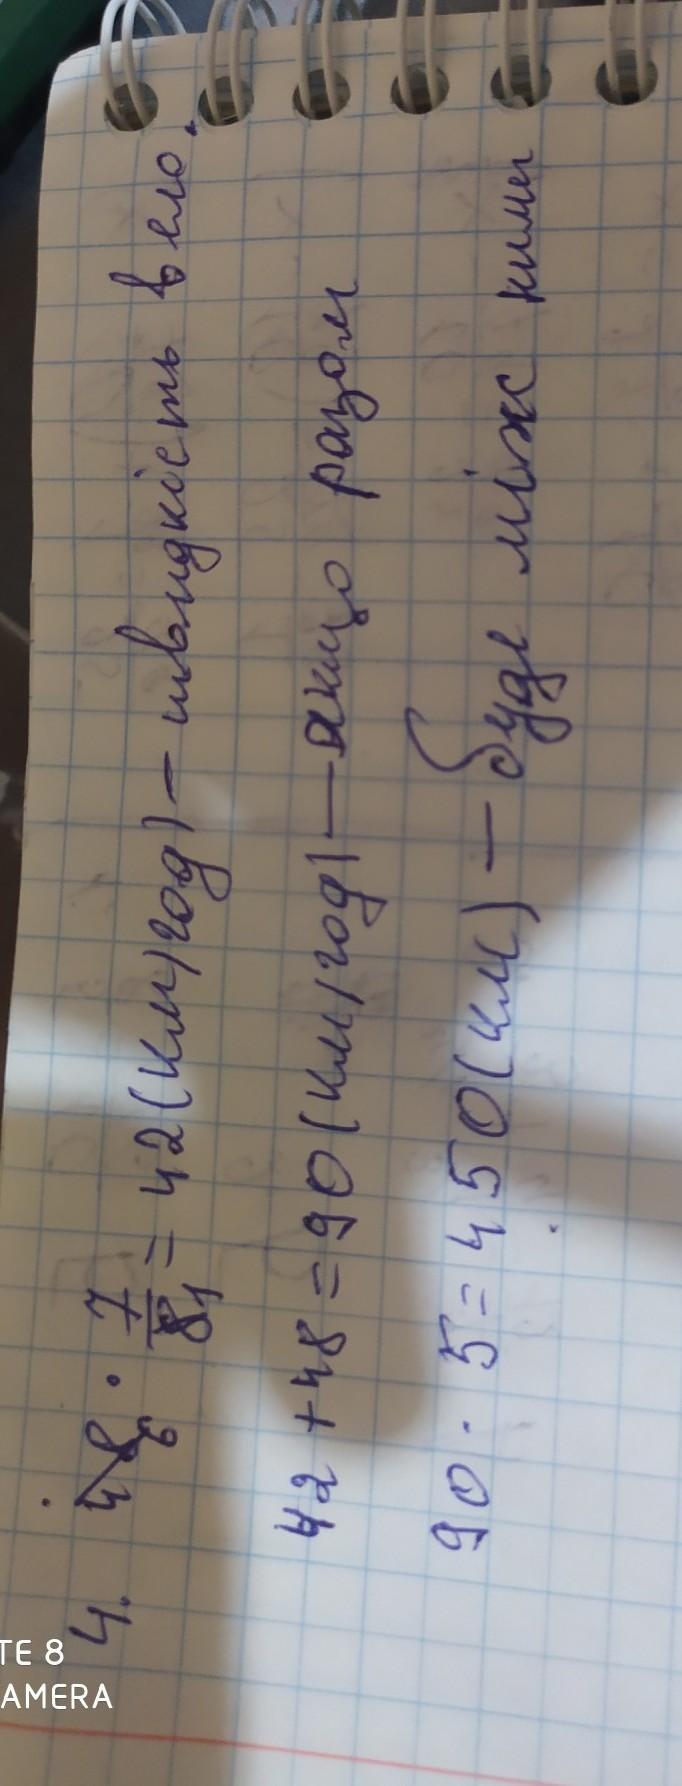 4. 48 6 · 7/8 1 = 42 (км/год) – швидкість вело.
42 + 48 = 90 (км/год) — якщо разом
90 · 5 = 450 (км) — буде між ними
TE 8
AMERA